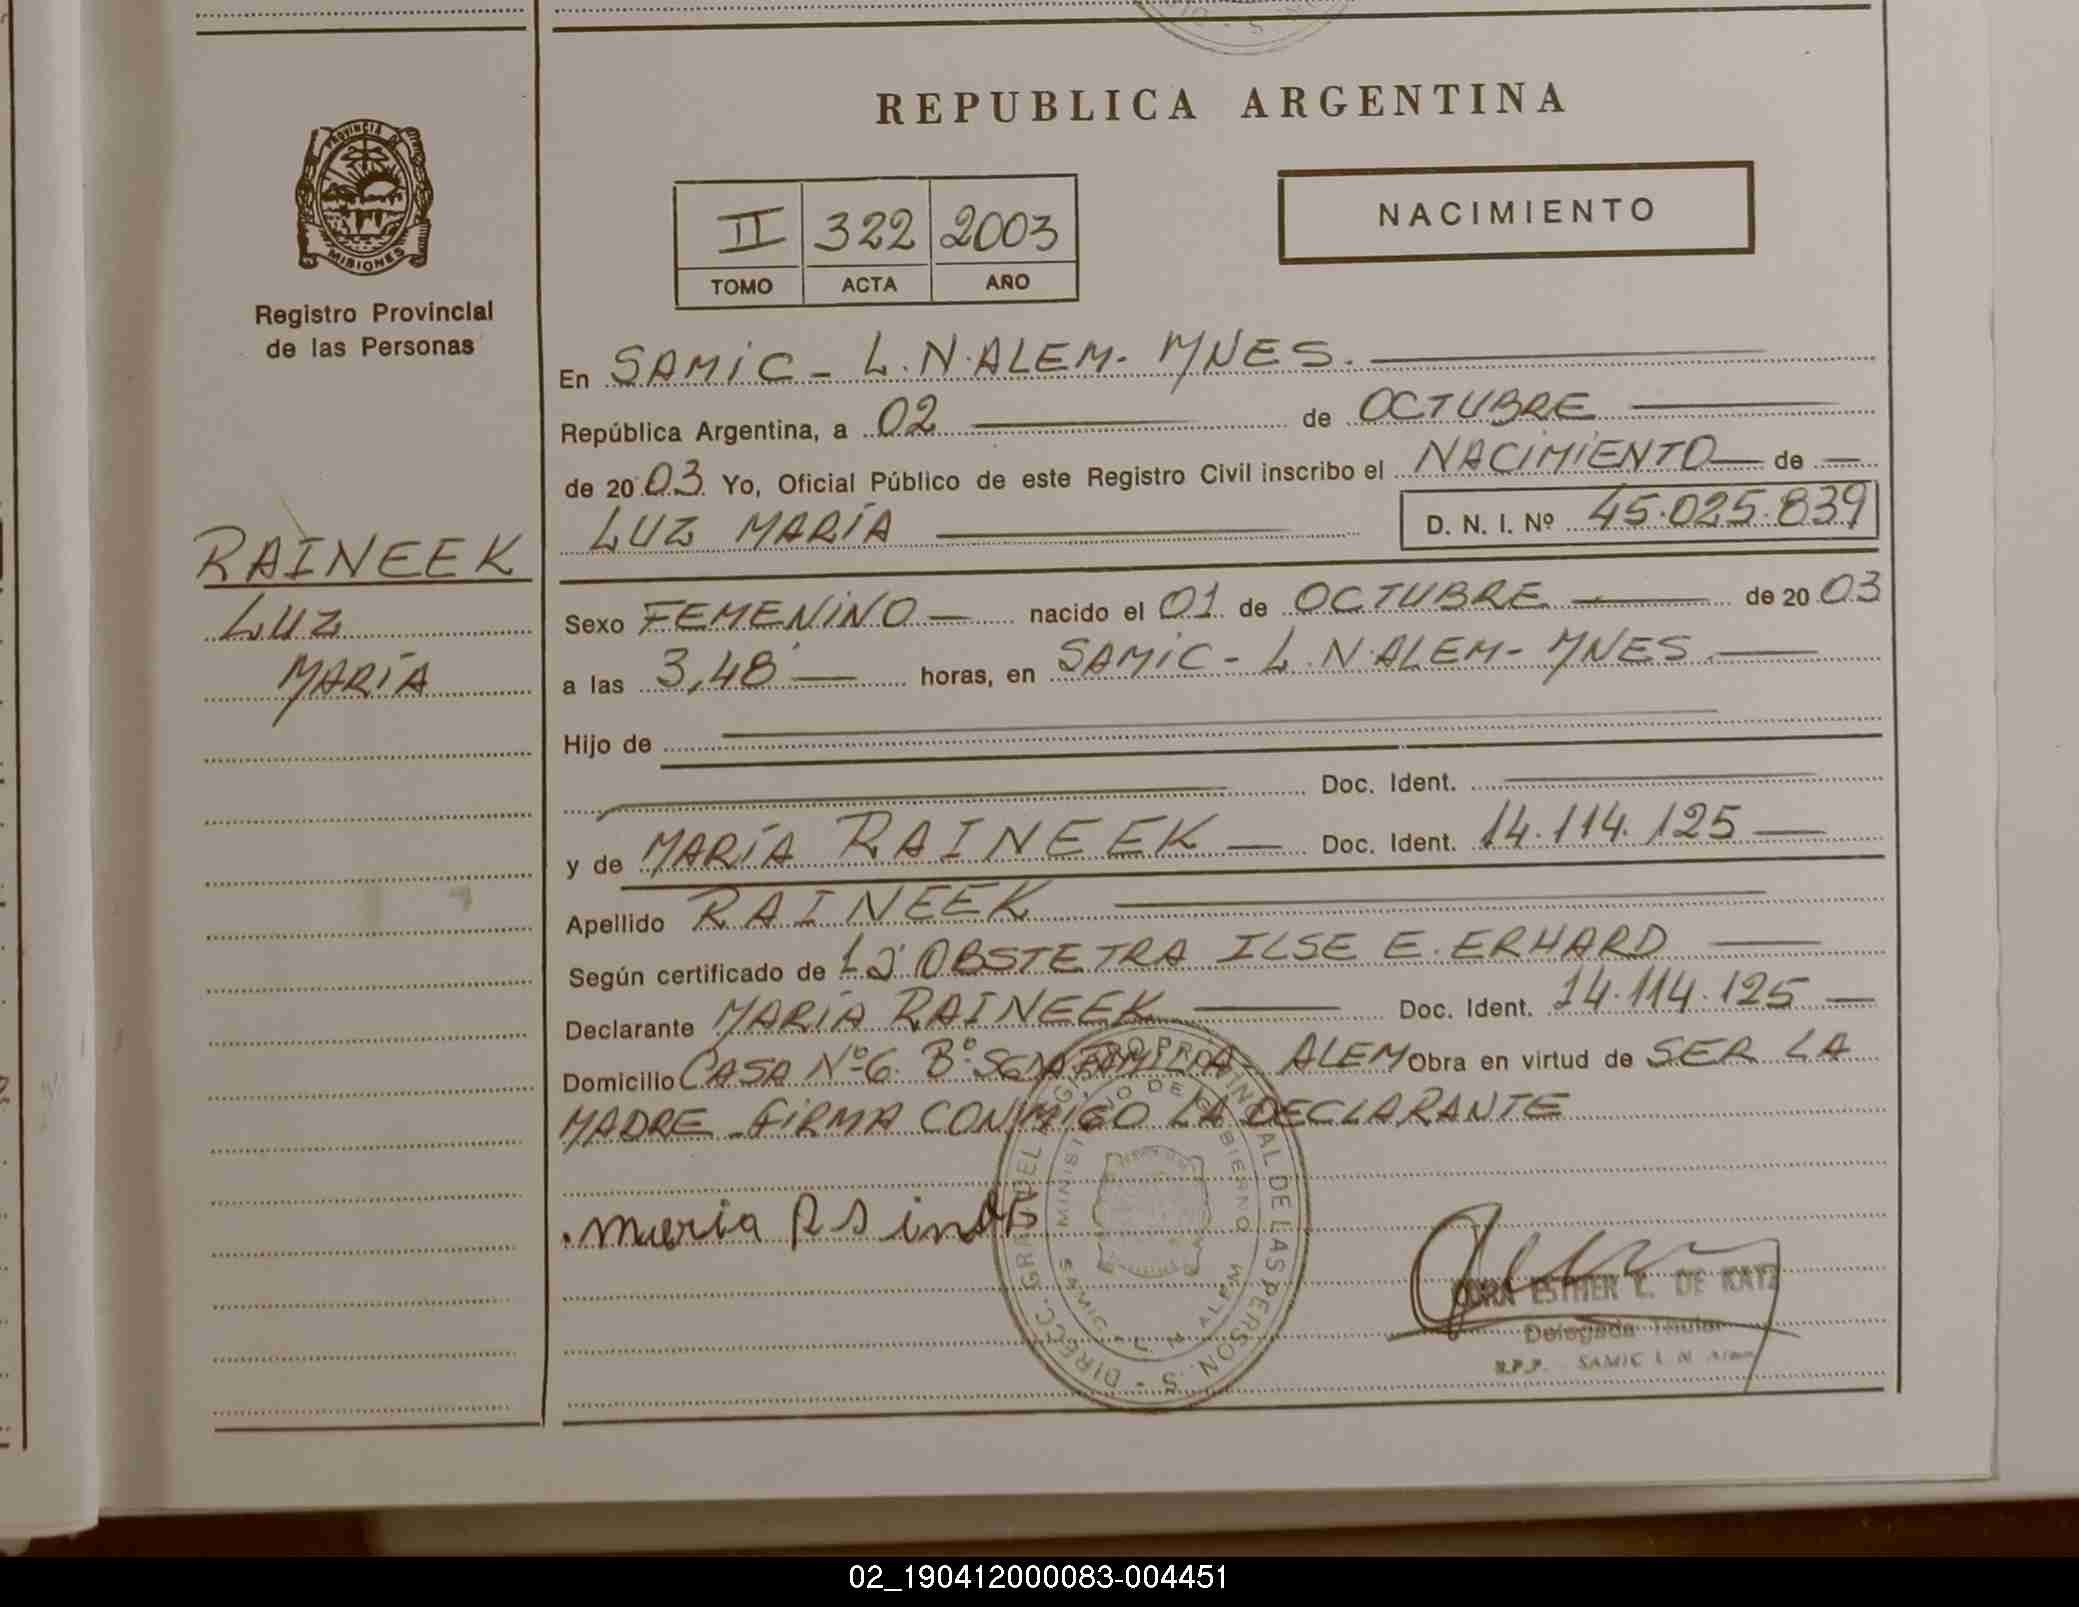 REPUBLICA ARGENTINA
PROVINCIA DE
MISIONES
Registro Provincial
de las Personas
II 322 2003
TOMO ACTA AÑO
NACIMIENTO
En SAMIC - L.N.ALEM- MNES.
República Argentina, a 02 de OCTUBRE
de 2003 Yo, Oficial Público de este Registro Civil inscribo el NACIMIENTO de
LUZ MARÍA D. N. I. Nº 45.025.839
RAINEEK
LUZ
MARÍA
Sexo FEMENINO nacido el 01 de OCTUBRE de 2003
a las 3,48 horas, en SAMIC - L.N.ALEM- MNES
Hijo de
Doc. Ident.
y de MARÍA RAINEEK Doc. Ident. 14.114.125
Apellido RAINEEK
Según certificado de OBSTETRA ILSE E. ERHARD
Declarante MARÍA RAINEEK Doc. Ident. 14.114.125
Domicilio CASA Nº6 Bº ALEM Obra en virtud de SER LA
MADRE - FIRMA CONMIGO LA DECLARANTE
maria
DIRECC. GRAL. DEL REGISTRO PROVINCIAL DE LAS PERSONAS
MINISTERIO DE GOBIERNO
SAMIC - L. N. ALEM
ESTHER DE KATZ
Delegada Titular
R.P.P. SAMIC L. N. Alem
02_190412000083-004451